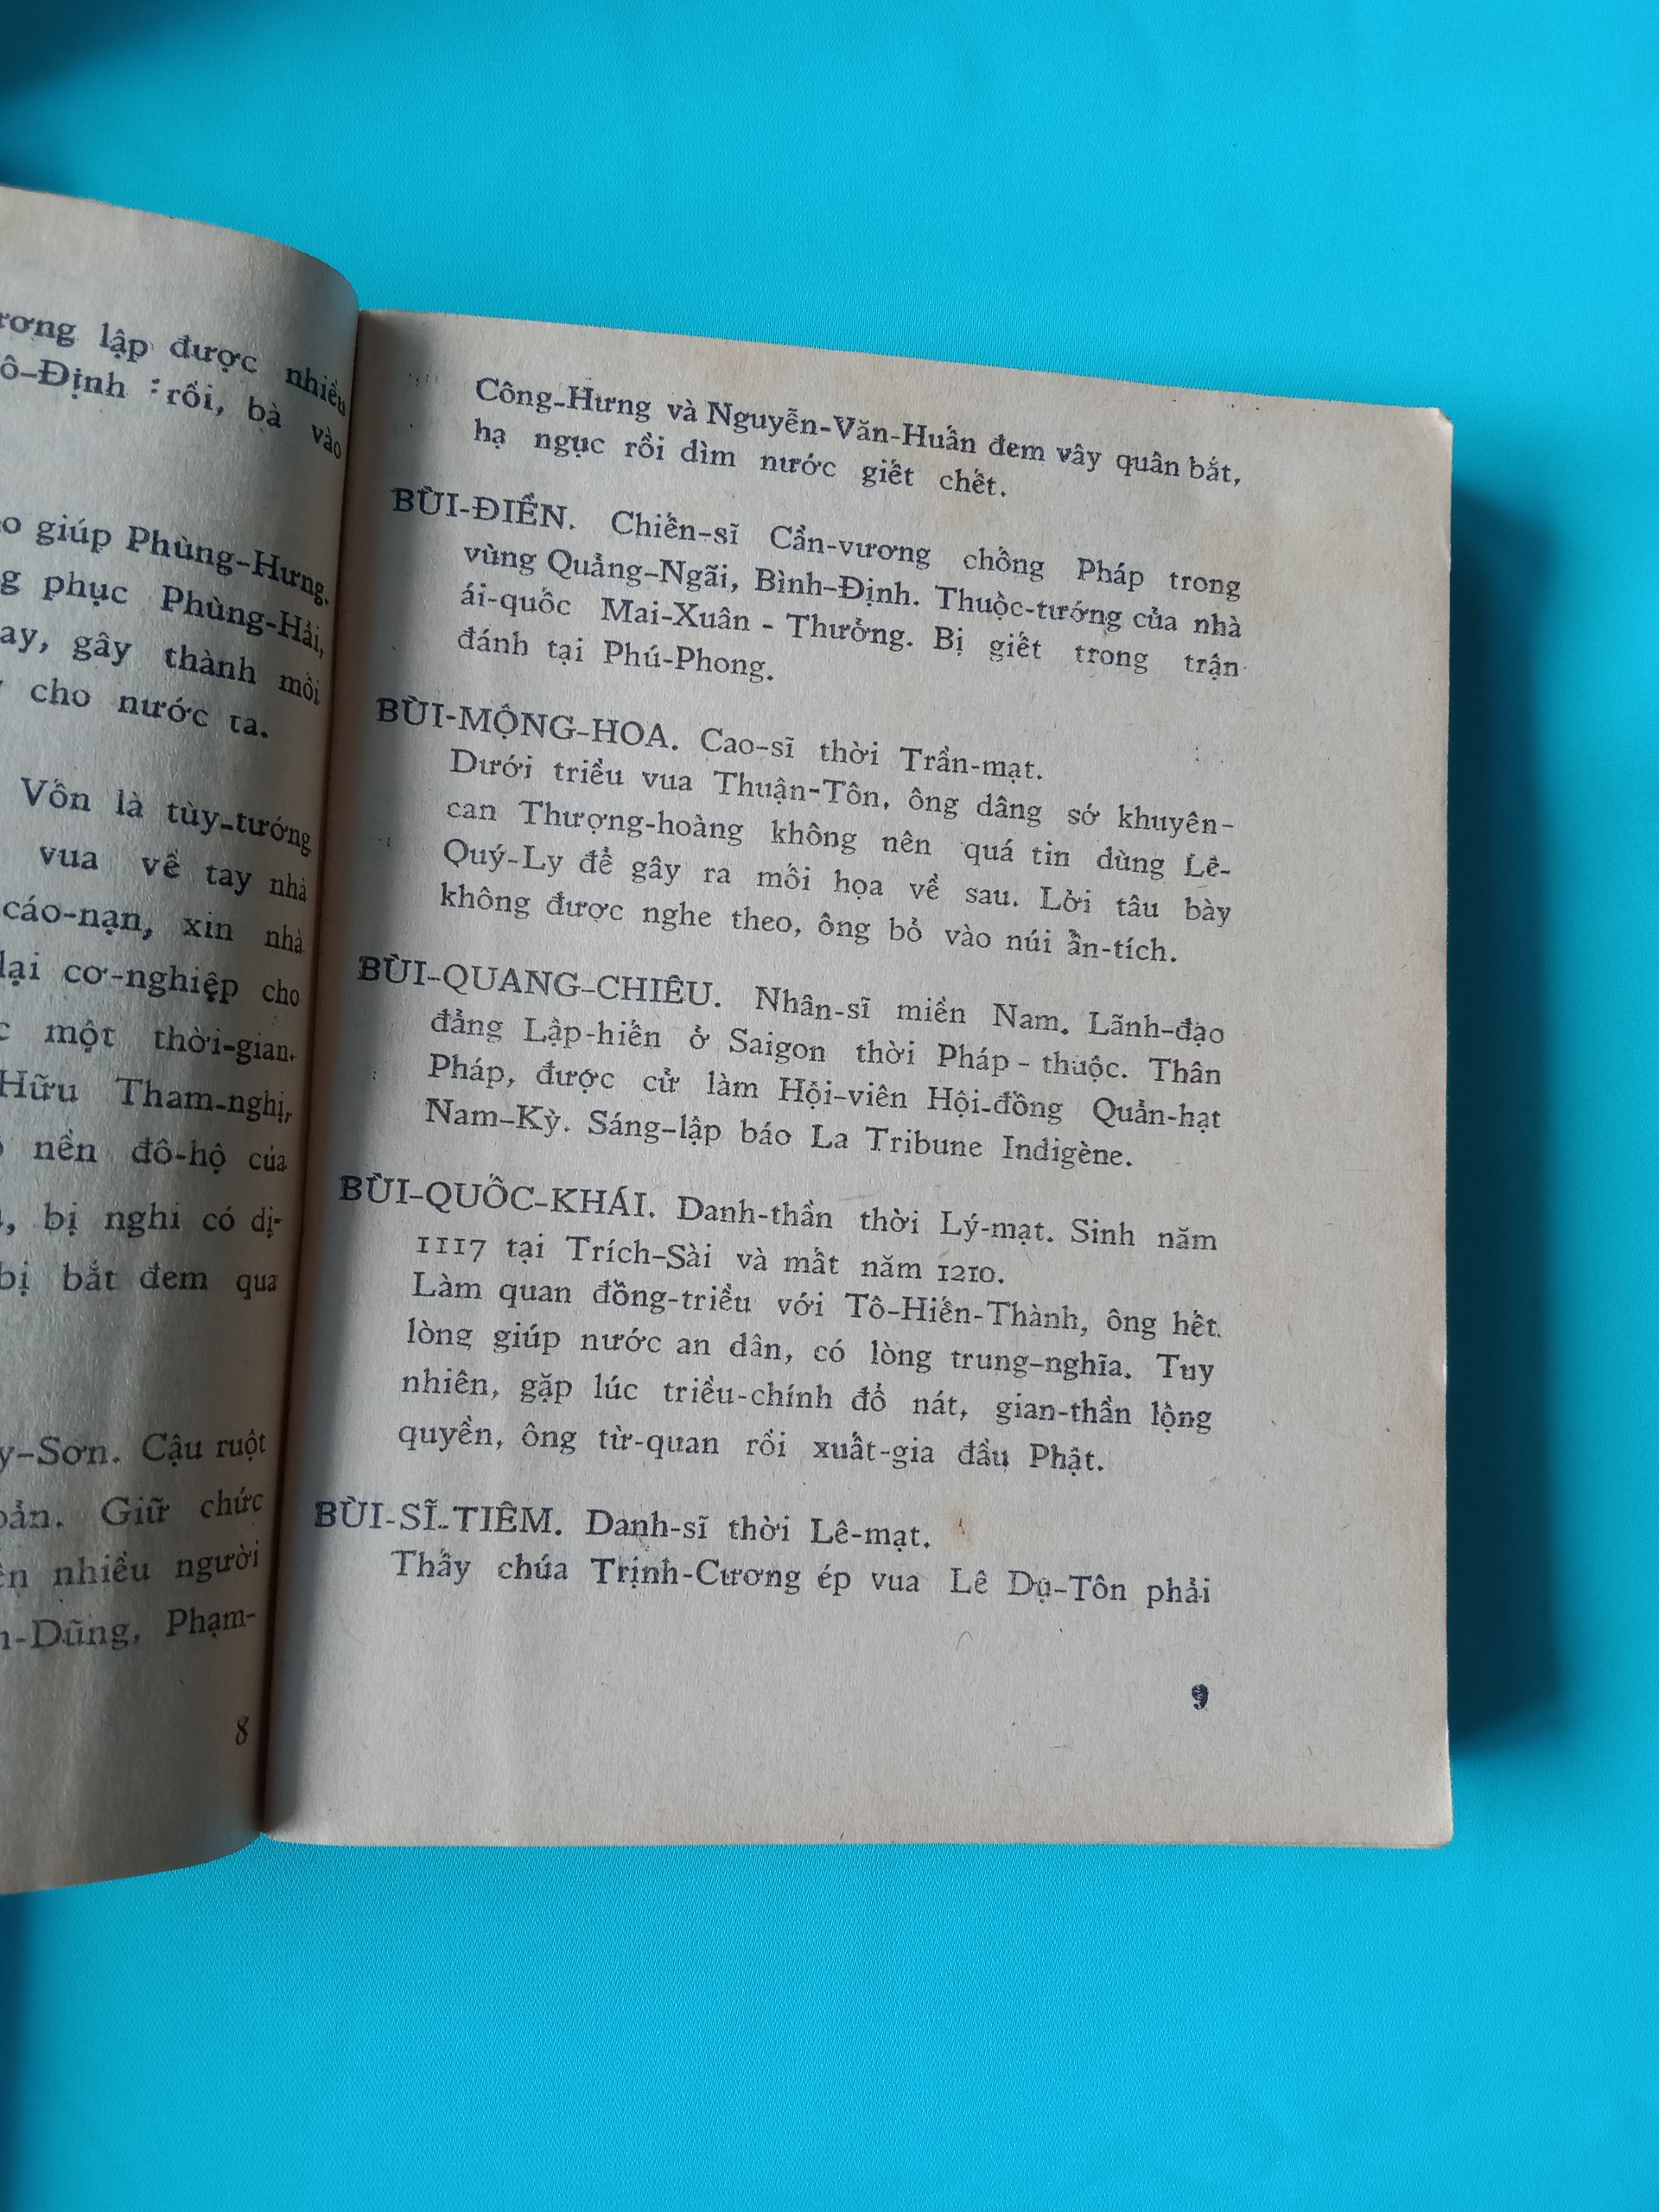 lập được nhiều
Định : rồi, bà vào
giúp Phùng-Hưng.
phục Phùng-Hải,
gây thành mối
cho nước ta.
Vốn là tùy-tướng
vua về tay nhà
cáo-nạn, xin nhà
lại cơ-nghiệp cho
một thời-gian.
Hữu Tham-nghị,
nền đô-hộ của
bị nghi có dị-
bị bắt đem qua
Sơn. Cậu ruột
Giữ chức
nhiều người
Dũng, Phạm-
8
Công-Hưng và Nguyễn-Văn-Huấn đem vây quân bắt,
hạ ngục rồi dìm nước giết chết.
BÙI-ĐIỀN. Chiến-sĩ Cần-vương chống Pháp trong
vùng Quảng-Ngãi, Bình-Định. Thuộc-tướng của nhà
ái-quốc Mai-Xuân - Thưởng. Bị giết trong trận
đánh tại Phú-Phong.
BÙI-MỘNG-HOA. Cao-sĩ thời Trần-mạt.
Dưới triều vua Thuận-Tôn, ông dâng sớ khuyên-
can Thượng-hoàng không nên quá tin dùng Lê-
Quý-Ly để gây ra mối họa về sau. Lời tâu bày
không được nghe theo, ông bỏ vào núi ẩn-tích.
BÙI-QUANG-CHIÊU. Nhân-sĩ miền Nam. Lãnh-đạo
đảng Lập-hiến ở Saigon thời Pháp - thuộc. Thân
Pháp, được cử làm Hội-viên Hội-đồng Quản-hạt
Nam-Kỳ. Sáng-lập báo La Tribune Indigène.
BÙI-QUỐC-KHÁI. Danh-thần thời Lý-mạt. Sinh năm
1117 tại Trích-Sài và mất năm 1210.
Làm quan đồng-triều với Tô-Hiến-Thành, ông hết
lòng giúp nước an dân, có lòng trung-nghĩa. Tuy
nhiên, gặp lúc triều-chính đổ nát, gian-thần lộng
quyền, ông từ-quan rồi xuất-gia đầu Phật.
BÙI-SĨ-TIÊM. Danh-sĩ thời Lê-mạt.
Thấy chúa Trịnh-Cương ép vua Lê Dụ-Tôn phải
9